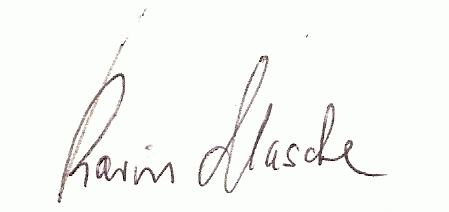 Karin Masche